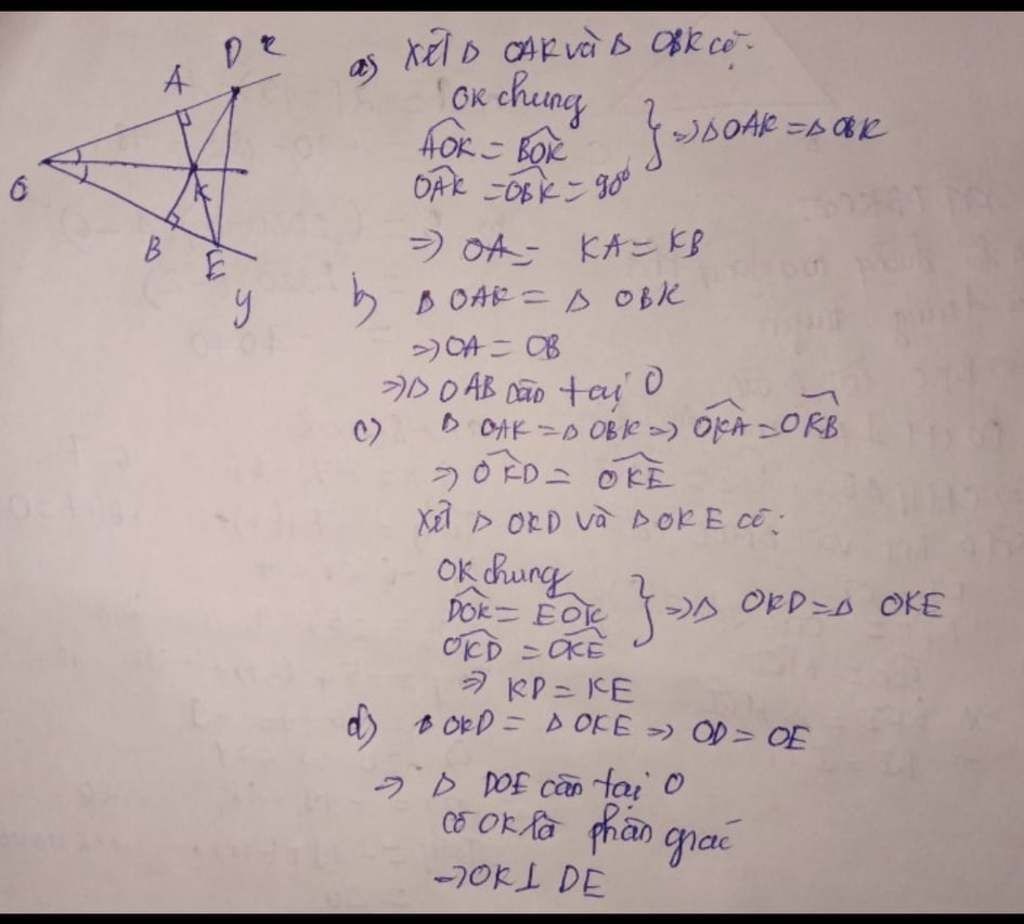 D x
A
O
K
B
E
y
a) Xét Δ OAK và Δ OBK có:
OK chung
AOK = BOK
OAK = OBK = 90°
=> Δ OAK = Δ OBK
=> OA = KA = KB
b) Δ OAK = Δ OBK
=> OA = OB
=> Δ OAB cân tại O
c) Δ OAK = Δ OBK => OKA = OKB
=> OKD = OKE
Xét Δ OKD và Δ OKE có:
OK chung
DOK = EOK
OKD = OKE
=> Δ OKD = Δ OKE
=> KD = KE
d) Δ OKD = Δ OKE => OD = OE
=> Δ DOE cân tại O
có OK là phân giác
=> OK ⊥ DE